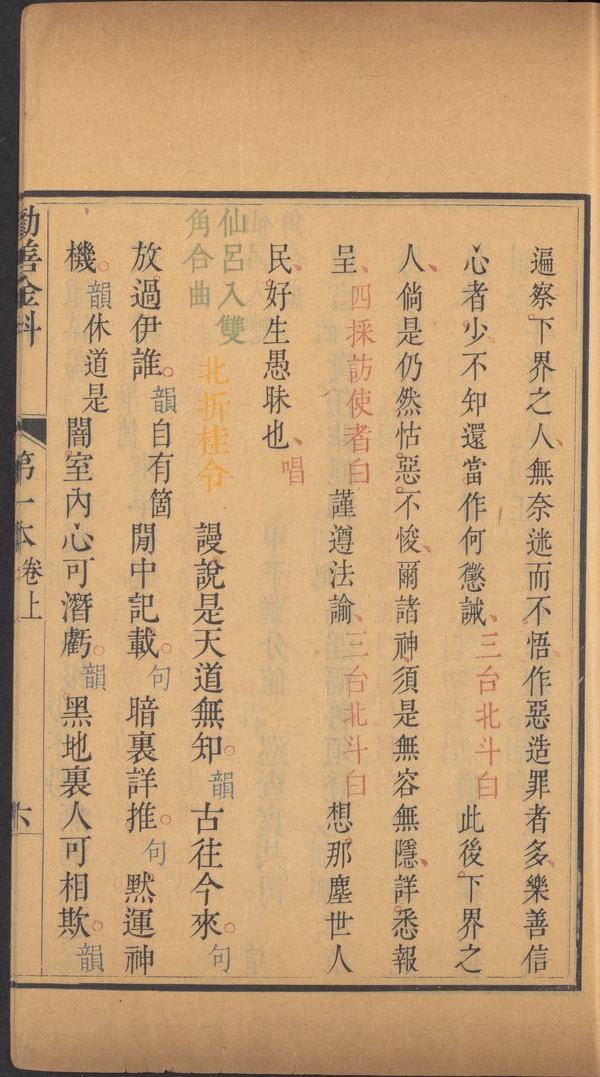 遍察下界之人無奈迷而不悟作惡造罪者多樂善信
心者少不知還當作何懲誡三台北斗白此後下界之
人倘是仍然怙惡不悛爾諸神須是無容無隱詳悉報
呈四採訪使者白謹遵法諭三台北斗白想那塵世人
民好生愚昧也唱
仙呂入雙
角合曲
北折桂令謾說是天道無知韻古往今來句
放過伊誰韻自有箇閒中記載句暗裏詳推句默運神
機韻休道是闇室內心可潛虧韻黑地裏人可相欺韻
勸善金科
第一本卷上
六